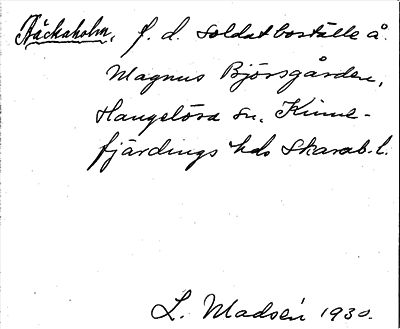 Bäckaholm, f. d. soldatboställe å
Magnus Björsgården,
Hangelösa sn. Kinne-
fjärdings hds Skarab. l.
L. Madsén 1930.